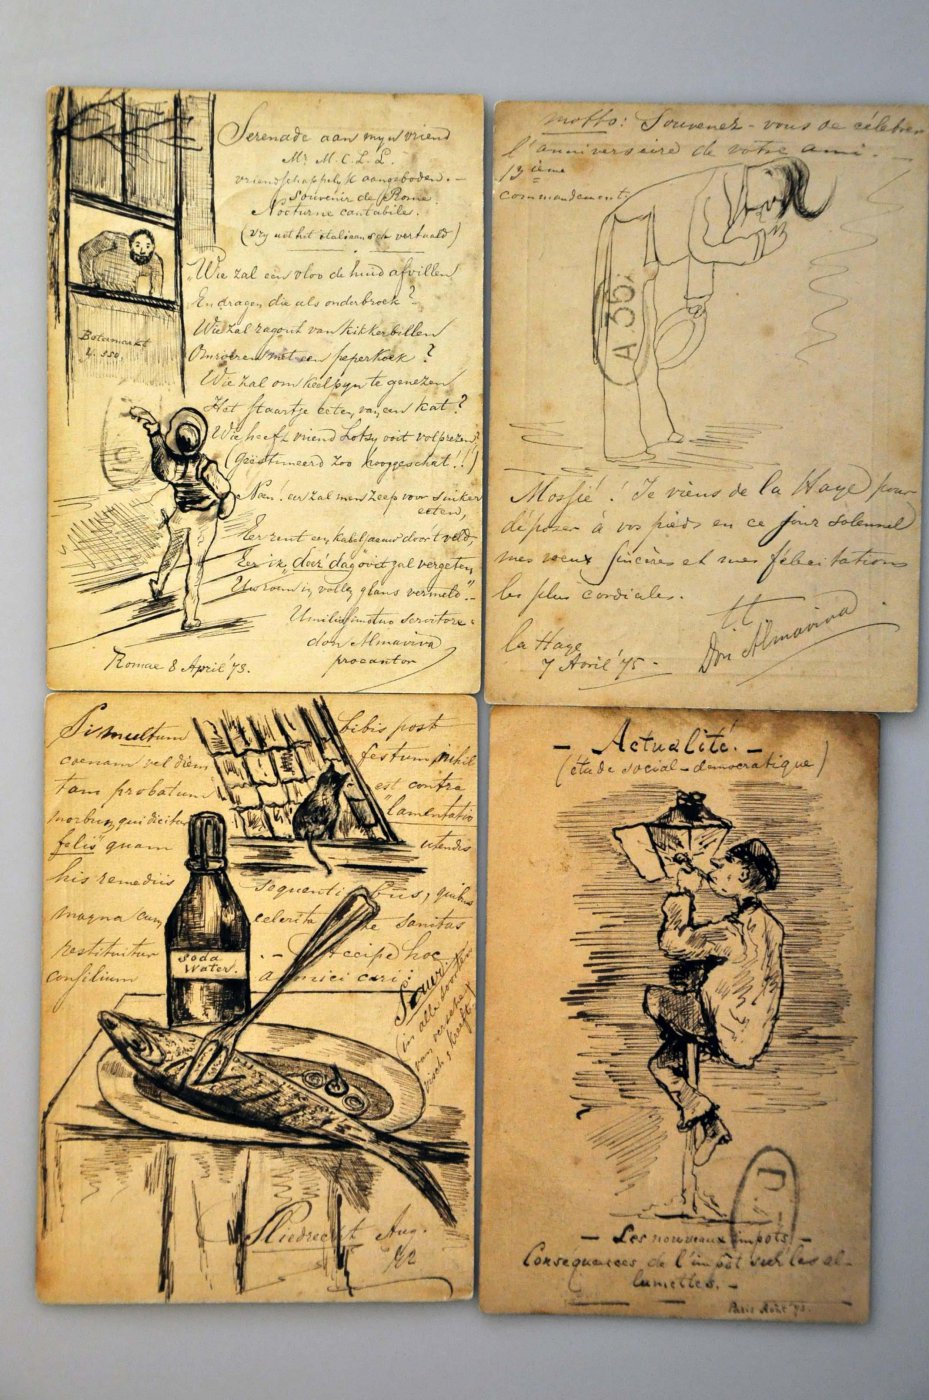 Serenade aan mijn vriend
Mr. M. C. L. L.
vriendschappelijk aangeboden. -
Souvenir de Rome.
Nocturne cantabile.
(vrij uit het italiaansch vertaald)
"Wie zal een vloo de huid afvillen
En dragen die als onderbroek?
Wie zal ragout van kikkerbillen
Omroeren met een peperkoek?
Wie zal om keelpijn te genezen
Het staartje eeten van een kat?
Wie heeft vriend Lotsy ooit volprezen?
(Geëstimeerd zoo hooggeschat!!)
Neen! eer zal men zeep voor suiker
eeten,
Eer rent een kabeljaauw door 't veld,
Eer ik "deez' dag" ooit zal vergeten,
Uw roem in volle glans vermeld." -
don Almaviva
procantor
Romae 8 April '73.
Botermarkt
motto: Souvenez-vous de célébrer
l'anniverseire de votre ami. -
commandement
A.35.
Mossié! Je viens de la Haye pour
déposer à vos pieds en ce jour solennel
mes voeux sincères et mes félicitations
les plus cordiales.
tt
Don Almaviva
la Haye
7 Avril '75 -
Si multum bibis post
coenam vel diem festum nihil
tam probatum est contra
morbum, qui dicitur "lamentatio
felis" quam utendis
his remediis sequentibus, quibus
magna cum celeritate sanitas
restituitur. - Accipe hoc
consilium amici cari
Soda
Water.
Sliedrecht Aug.
- Actualité. -
(étude social-democratique)
- Les nouveaux impots. -
Conséquences de l'impôt sur les al-
lumettes. -
Paris Août